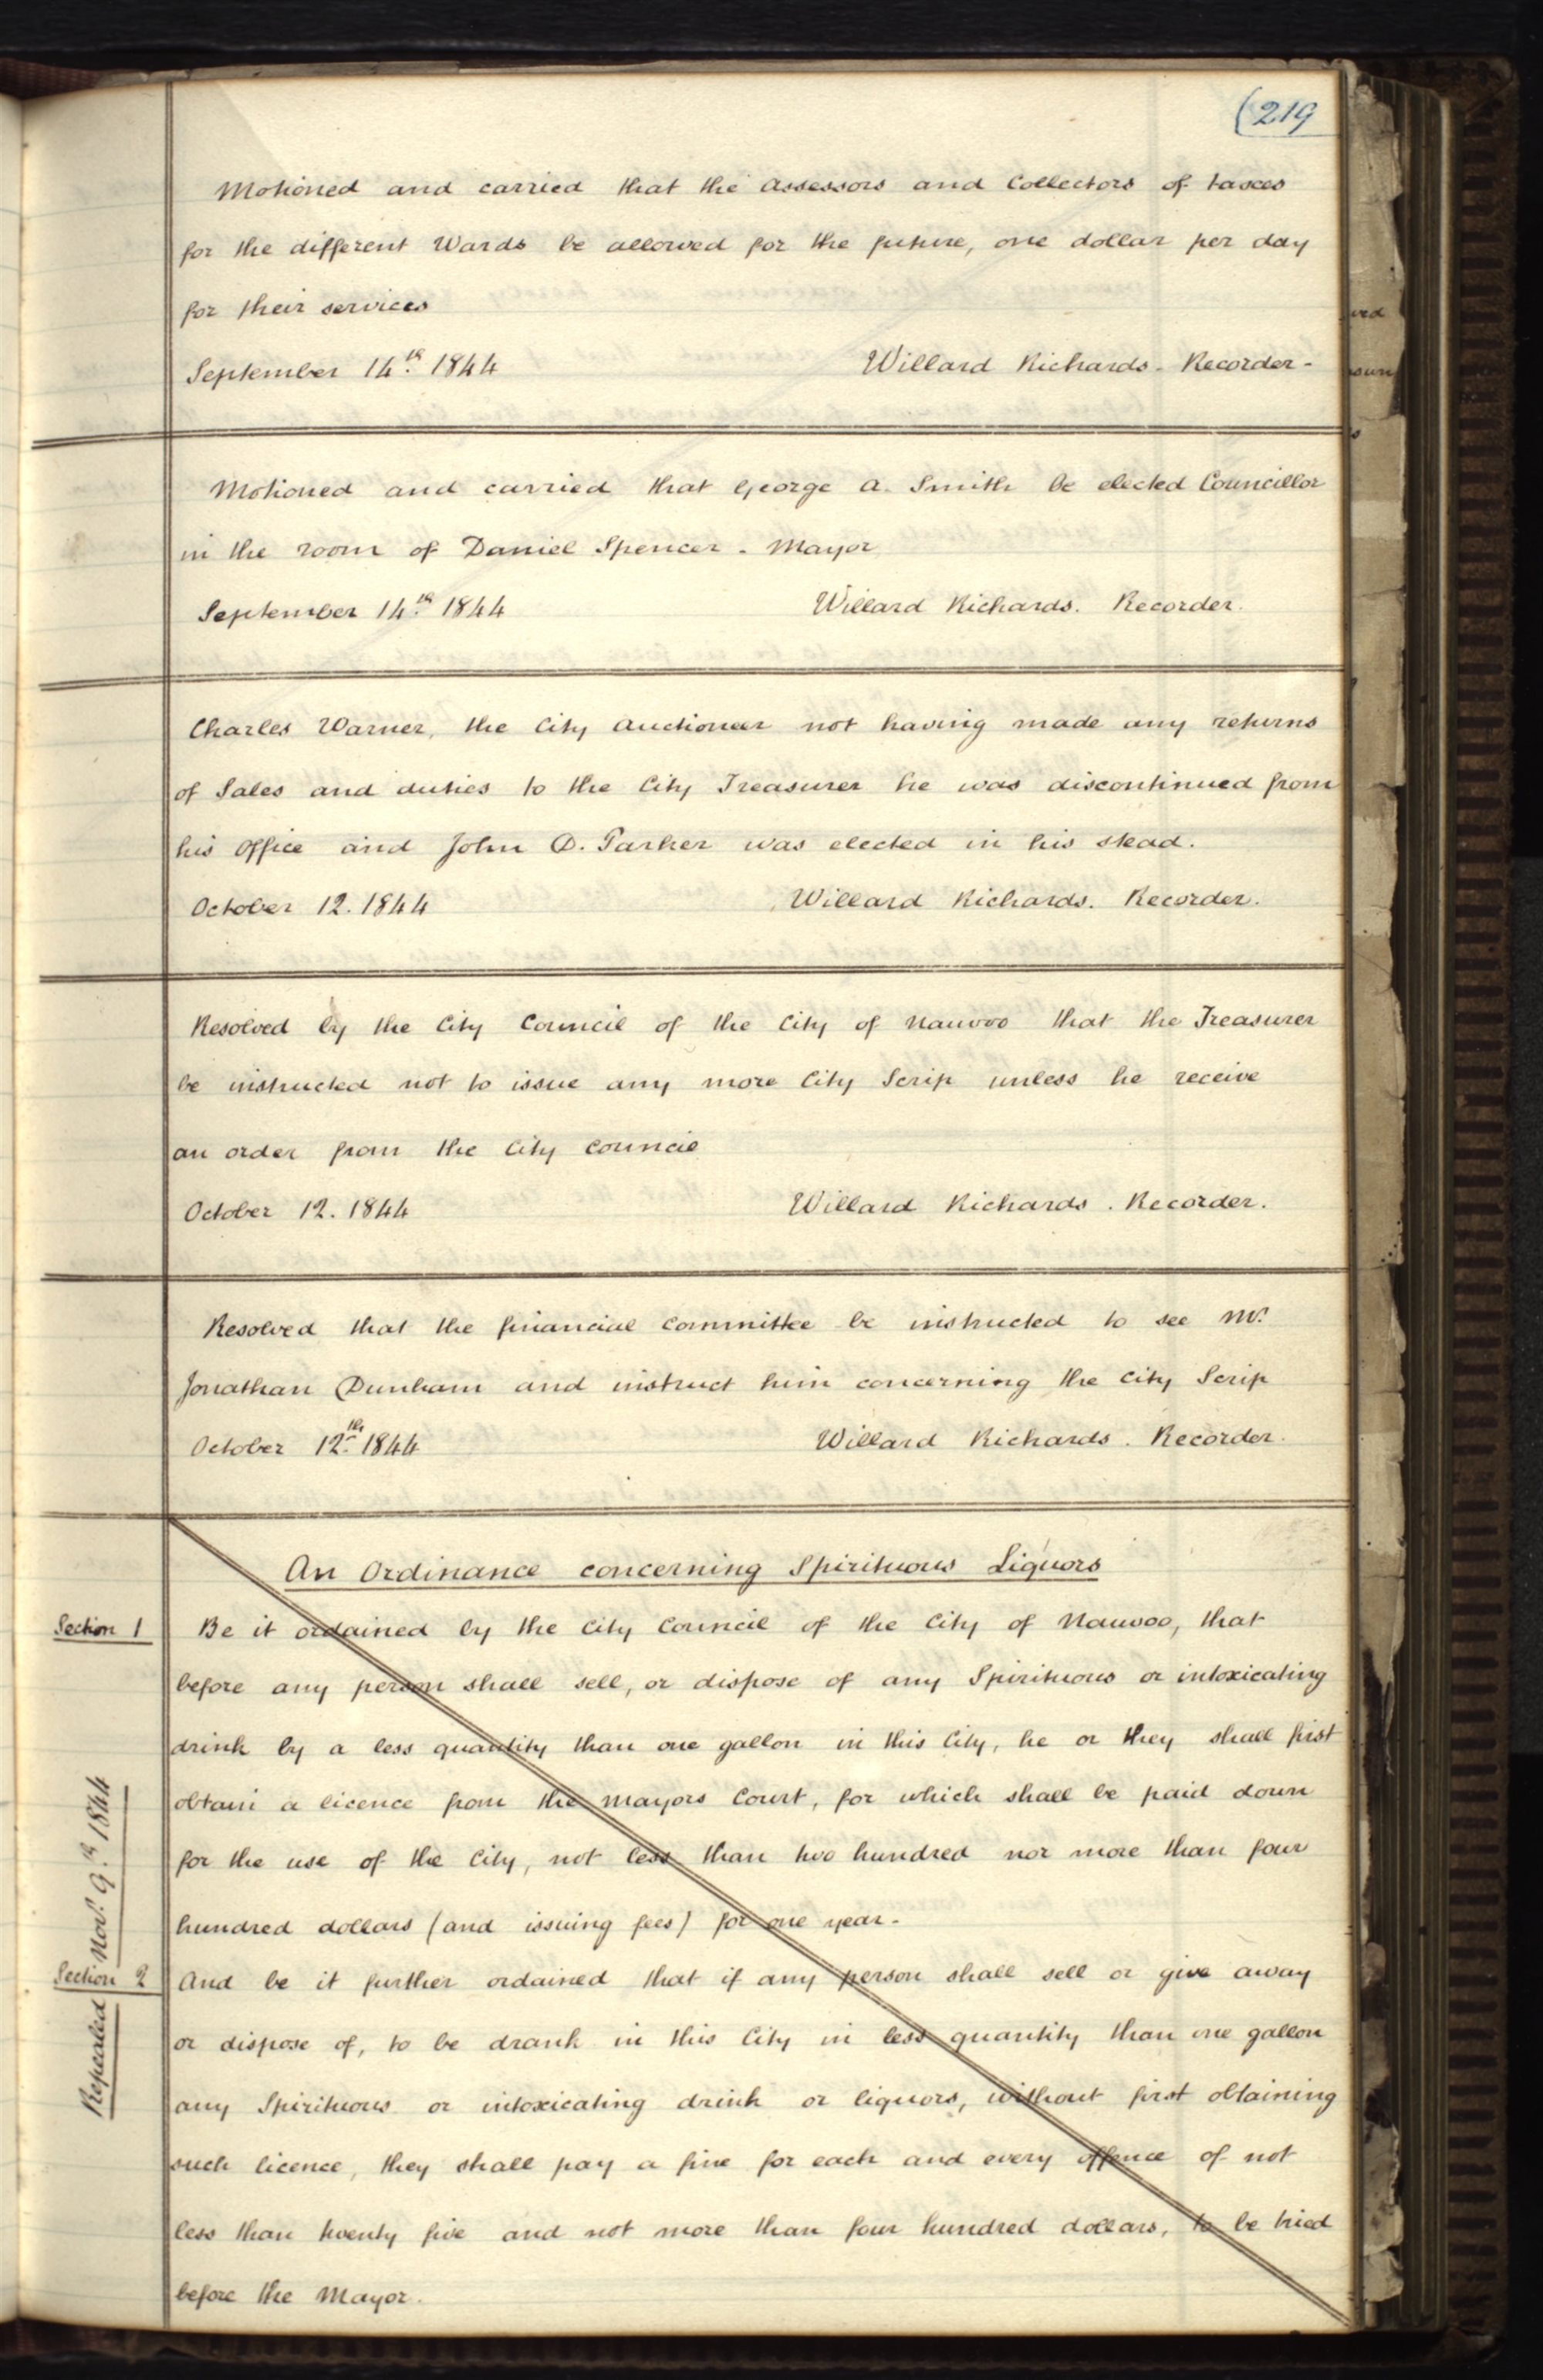 (219
Motioned and carried that the Assessors and Collectors of taxes
for the different Wards be allowed for the future, one dollar per day
for their services
September 14.th 1844 Willard Richards - Recorder -
Motioned and carried that George A. Smith be elected Councillor
in the room of Daniel Spencer - Mayor
September 14.th 1844 Willard Richards. Recorder.
Charles Warner, the City Auctioneer not having made any returns
of Sales and duties to the City Treasurer he was discontinued from
his Office and John D. Parker was elected in his stead.
October 12. 1844 Willard Richards. Recorder.
Resolved by the City Council of the City of Nauvoo that the Treasurer
be instructed not to issue any more City Scrip unless he receive
an order from the City Council
October 12. 1844 Willard Richards. Recorder.
Resolved that the financial Committee be instructed to see Mr.
Jonathan Dunham and instruct him concerning the City Scrip
October 12.th 1844 Willard Richards. Recorder.
An Ordinance concerning Spirituous Liquors
Section 1 Be it ordained by the City Council of the City of Nauvoo, that
before any person shall sell, or dispose of any Spirituous or intoxicating
drink by a less quantity than one gallon in this City, he or they shall first
obtain a licence from the Mayors Court, for which shall be paid down
for the use of the City, not less than two hundred nor more than four
hundred dollars (and issuing fees) for one year -
Section 2 And be it further ordained that if any person shall sell or give away
or dispose of, to be drank in this City in less quantity than one gallon
any Spirituous or intoxicating drink or liquors, without first obtaining
such licence, they shall pay a fine for each and every offence of not
less than twenty five and not more than four hundred dollars, to be tried
before the Mayor.
Repealed Nov.r 9.th 1844